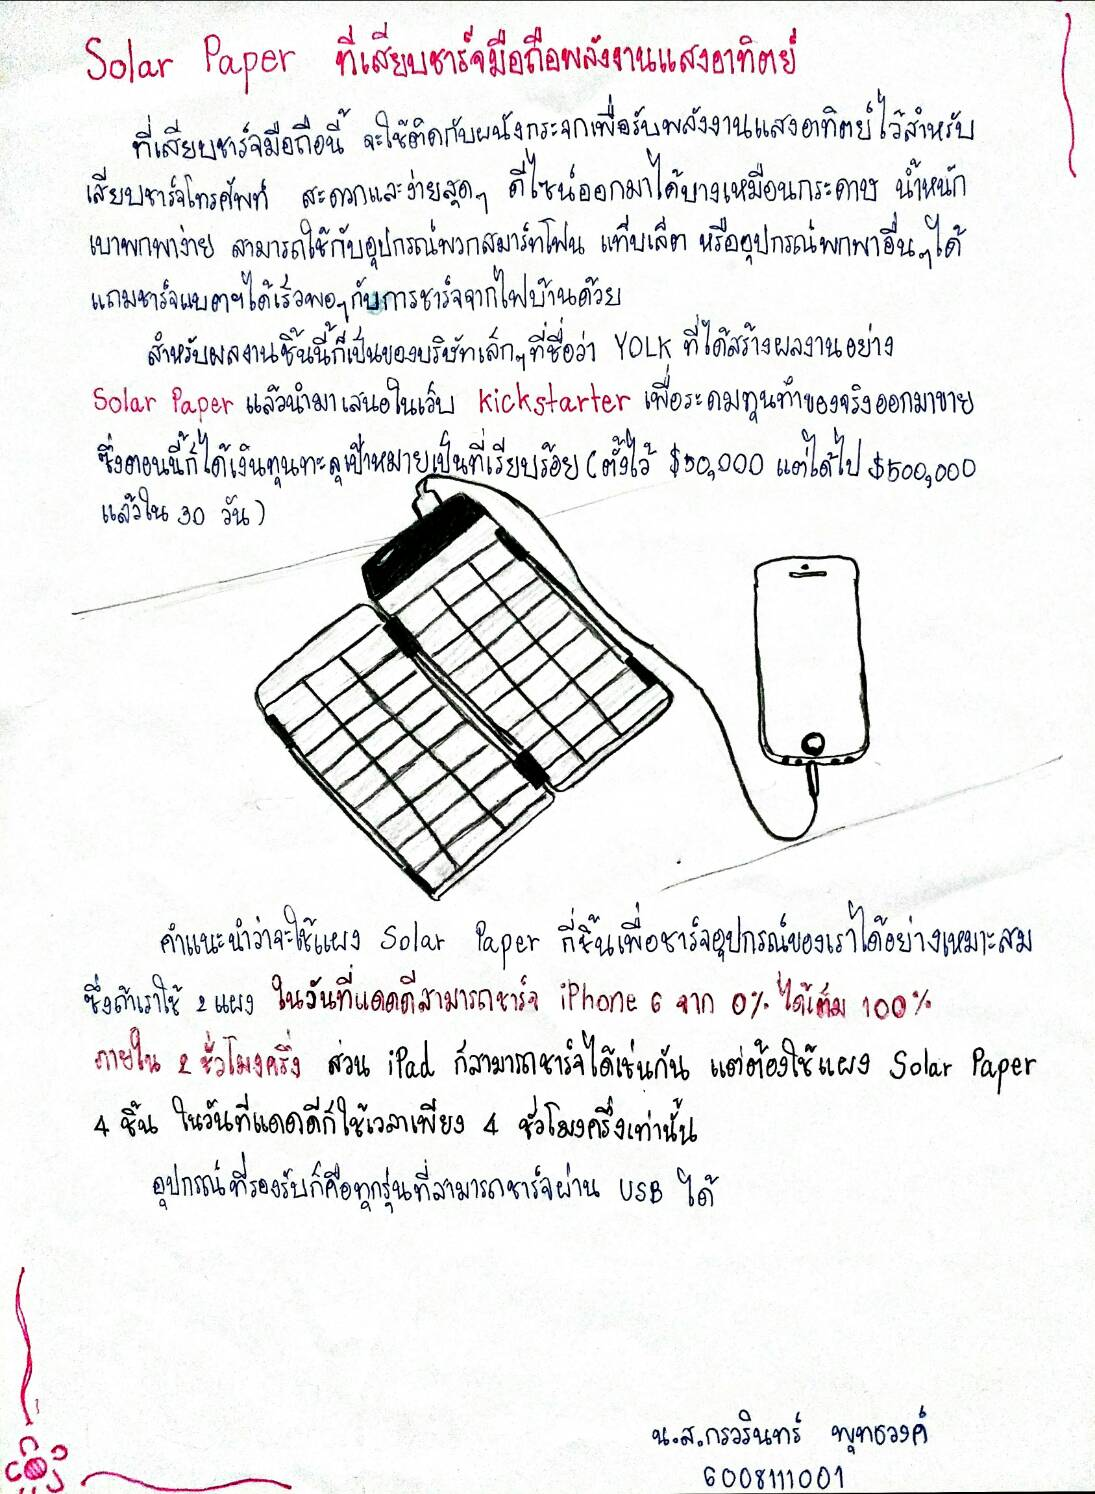 Solar Paper ที่เสียบชาร์จมือถือพลังงานแสงอาทิตย์
ที่เสียบชาร์จมือถือนี้ จะใช้ติดกับผนังกระจกเพื่อรับพลังงานแสงอาทิตย์ไว้สำหรับ
เสียบชาร์จโทรศัพท์ สะดวกและง่ายสุดๆ ดีไซน์ออกมาได้บางเหมือนกระดาษ น้ำหนัก
เบาพกพาง่าย สามารถใช้กับอุปกรณ์พวกสมาร์ทโฟน แท็บเล็ต หรืออุปกรณ์พกพาอื่นๆได้
แถมชาร์จแบตฯได้เร็วพอๆกับการชาร์จจากไฟบ้านด้วย
สำหรับผลงานชิ้นนี้ก็เป็นของบริษัทเล็กๆที่ชื่อว่า YOLK ที่ได้สร้างผลงานอย่าง
Solar Paper แล้วนำมาเสนอในเว็บ kickstarter เพื่อระดมทุนทำของจริงออกมาขาย
ซึ่งตอนนี้ก็ได้เงินทุนทะลุเป้าหมายเป็นที่เรียบร้อย (ตั้งไว้ $50,000 แต่ได้ไป $500,000
แล้วใน 30 วัน)
คำแนะนำว่าจะใช้แผง Solar Paper กี่ชิ้นเพื่อชาร์จอุปกรณ์ของเราได้อย่างเหมาะสม
ซึ่งถ้าเราใช้ 2 แผง ในวันที่แดดดีสามารถชาร์จ iPhone 6 จาก 0% ได้เต็ม 100%
ภายใน 2 ชั่วโมงครึ่ง ส่วน iPad ก็สามารถชาร์จได้เช่นกัน แต่ต้องใช้แผง Solar Paper
4 ชิ้น ในวันที่แดดดีก็ใช้เวลาเพียง 4 ชั่วโมงครึ่งเท่านั้น
อุปกรณ์ที่รองรับก็คือทุกรุ่นที่สามารถชาร์จผ่าน USB ได้
น.ส.กรวรินทร์ พุทธวงค์
6008111001